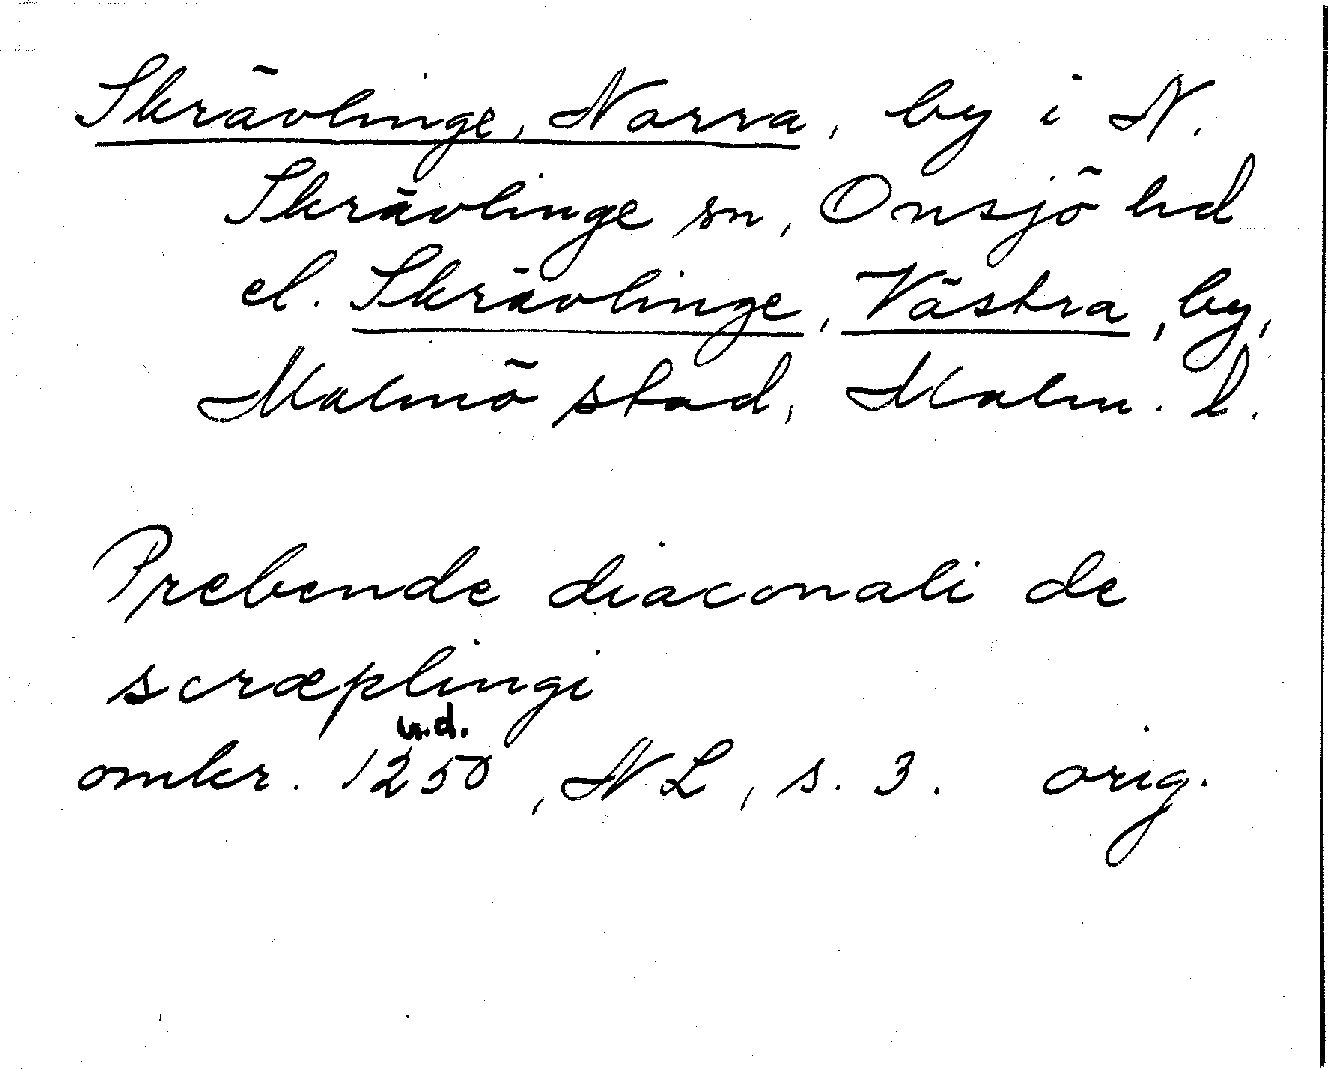 Skrävlinge, Norra, by i N.
Skrävlinge sn, Onsjö hd
el. Skrävlinge, Västra, by,
Malmö stad, Malm. l.
Prebende diaconali de
scræplingi
u.d.
omkr. 1250, NL, s. 3. orig.